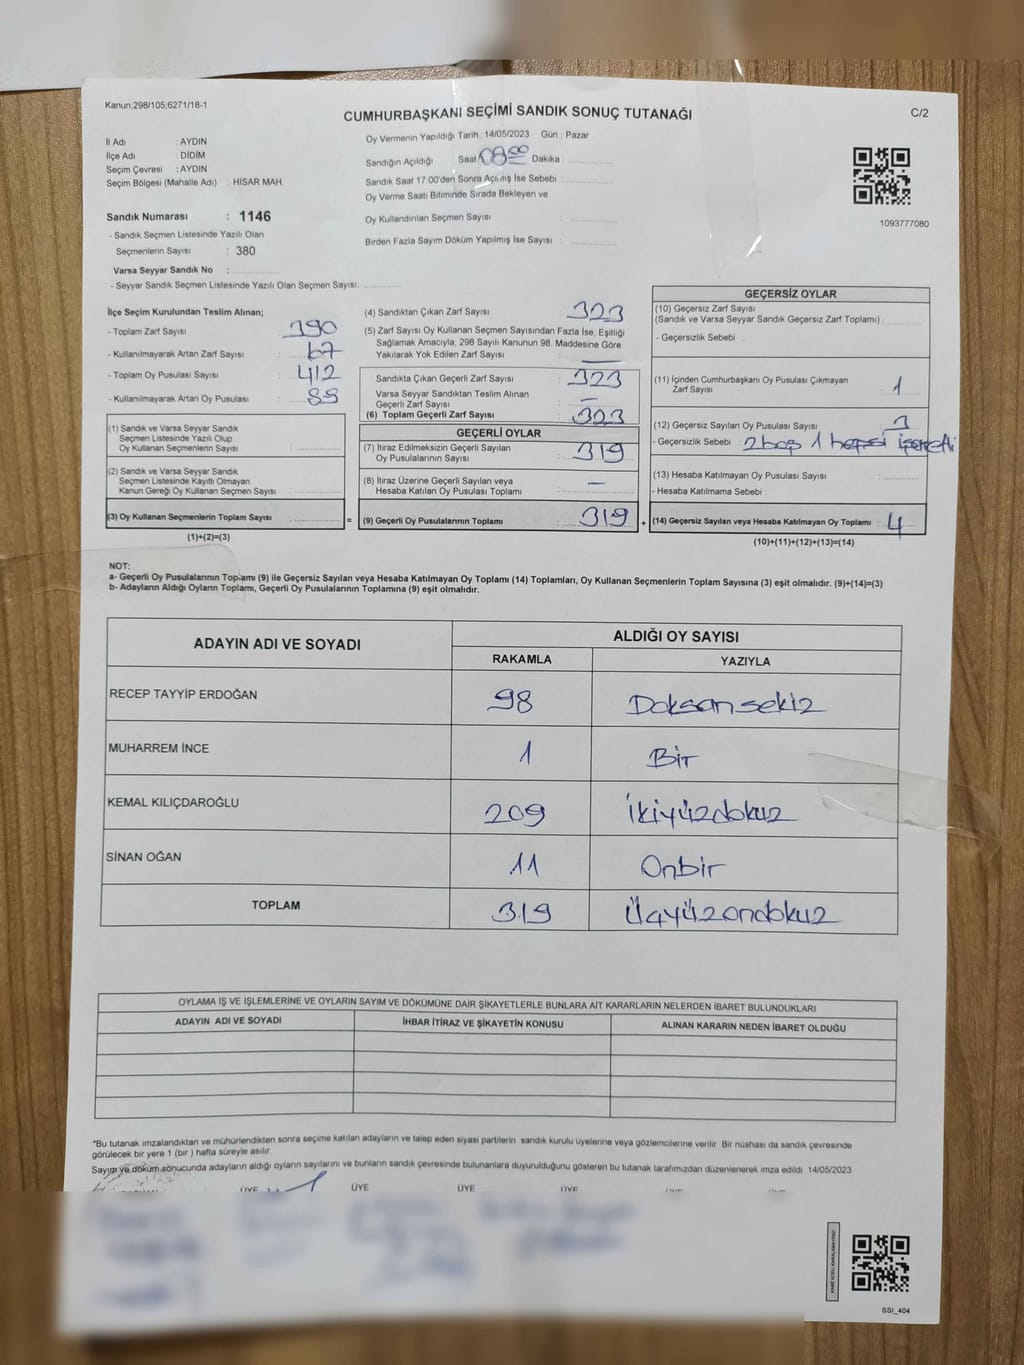 Kanun,298/105;6271/18-1
CUMHURBAŞKANI SEÇİMİ SANDIK SONUÇ TUTANAĞI
C/2
İl Adı : AYDIN
İlçe Adı : DİDİM
Seçim Çevresi : AYDIN
Seçim Bölgesi (Mahalle Adı) : HİSAR MAH.
Oy Vermenin Yapıldığı Tarih : 14/05/2023 Gün : Pazar
Sandığın Açıldığı Saat 08:00 Dakika :
Sandık Saat 17:00'den Sonra Açılmış İse Sebebi :
Oy Verme Saati Bitiminde Sırada Bekleyen ve
Oy Kullandırılan Seçmen Sayısı :
Birden Fazla Sayım Döküm Yapılmış İse Sayısı :
1093777080
Sandık Numarası : 1146
- Sandık Seçmen Listesinde Yazılı Olan
Seçmenlerin Sayısı : 380
Varsa Seyyar Sandık No :
- Seyyar Sandık Seçmen Listesinde Yazılı Olan Seçmen Sayısı:
İlçe Seçim Kurulundan Teslim Alınan;
- Toplam Zarf Sayısı : 390
- Kullanılmayarak Artan Zarf Sayısı : 67
- Toplam Oy Pusulası Sayısı : 412
- Kullanılmayarak Artan Oy Pusulası :
(1) Sandık ve Varsa Seyyar Sandık
Seçmen Listesinde Yazılı Olup
Oy Kullanan Seçmenlerin Sayısı :
(2) Sandık ve Varsa Seyyar Sandık
Seçmen Listesinde Kayıtlı Olmayan
Kanun Gereği Oy Kullanan Seçmen Sayısı :
(3) Oy Kullanan Seçmenlerin Toplam Sayısı :
(1)+(2)=(3)
(4) Sandıktan Çıkan Zarf Sayısı : 323
(5) Zarf Sayısı Oy Kullanan Seçmen Sayısından Fazla İse, Eşitliği
Sağlamak Amacıyla, 298 Sayılı Kanunun 98. Maddesine Göre
Yakılarak Yok Edilen Zarf Sayısı : —
Sandıkta Çıkan Geçerli Zarf Sayısı : 323
Varsa Seyyar Sandıktan Teslim Alınan
Geçerli Zarf Sayısı : —
(6) Toplam Geçerli Zarf Sayısı : 323
GEÇERLİ OYLAR
(7) İtiraz Edilmeksizin Geçerli Sayılan
Oy Pusulalarının Sayısı : 319
(8) İtiraz Üzerine Geçerli Sayılan veya
Hesaba Katılan Oy Pusulası Toplamı : —
= (9) Geçerli Oy Pusulalarının Toplamı : 319
GEÇERSİZ OYLAR
(10) Geçersiz Zarf Sayısı
(Sandık ve Varsa Seyyar Sandık Geçersiz Zarf Toplamı) :
- Geçersizlik Sebebi :
(11) İçinden Cumhurbaşkanı Oy Pusulası Çıkmayan
Zarf Sayısı : 1
(12) Geçersiz Sayılan Oy Pusulası Sayısı : 3
- Geçersizlik Sebebi : 2 boş 1 hepsi işaretli
(13) Hesaba Katılmayan Oy Pusulası Sayısı :
- Hesaba Katılmama Sebebi :
+ (14) Geçersiz Sayılan veya Hesaba Katılmayan Oy Toplamı : 4
(10)+(11)+(12)+(13)=(14)
NOT:
a- Geçerli Oy Pusulalarının Toplamı (9) ile Geçersiz Sayılan veya Hesaba Katılmayan Oy Toplamı (14) Toplamları, Oy Kullanan Seçmenlerin Toplam Sayısına (3) eşit olmalıdır. (9)+(14)=(3)
b- Adayların Aldığı Oyların Toplamı, Geçerli Oy Pusulalarının Toplamına (9) eşit olmalıdır.
ADAYIN ADI VE SOYADI ALDIĞI OY SAYISI
RAKAMLA YAZIYLA
RECEP TAYYİP ERDOĞAN 98 Doksansekiz
MUHARREM İNCE 1 Bir
KEMAL KILIÇDAROĞLU 209 İkiyüzdokuz
SİNAN OĞAN 11 Onbir
TOPLAM 319 Üçyüzondokuz
OYLAMA İŞ VE İŞLEMLERİNE VE OYLARIN SAYIM VE DÖKÜMÜNE DAİR ŞİKAYETLERLE BUNLARA AİT KARARLARIN NELERDEN İBARET BULUNDUKLARI
ADAYIN ADI VE SOYADI İHBAR İTİRAZ VE ŞİKAYETİN KONUSU ALINAN KARARIN NEDEN İBARET OLDUĞU
*Bu tutanak imzalandıktan ve mühürlendikten sonra seçime katılan adayların ve talep eden siyasi partilerin sandık kurulu üyelerine veya gözlemcilerine verilir. Bir nüshası da sandık çevresinde
görülecek bir yere 1 (bir) hafta süreyle asılır.
Sayım ve döküm sonucunda adayların aldığı oyların sayılarını ve bunların sandık çevresinde bulunanlara duyurulduğunu gösteren bu tutanak tarafımızdan düzenlenerek imza edildi. 14/05/2023
ÜYE ÜYE ÜYE ÜYE
SSI_404